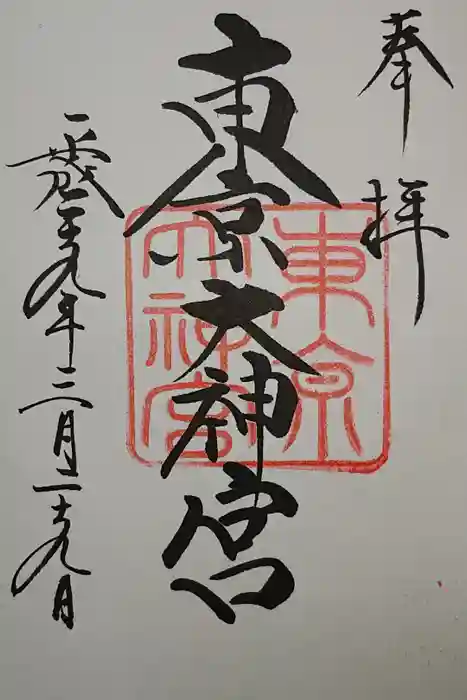 奉拝
東京大神宮
東京
大神宮
平成二十九年月二十九日